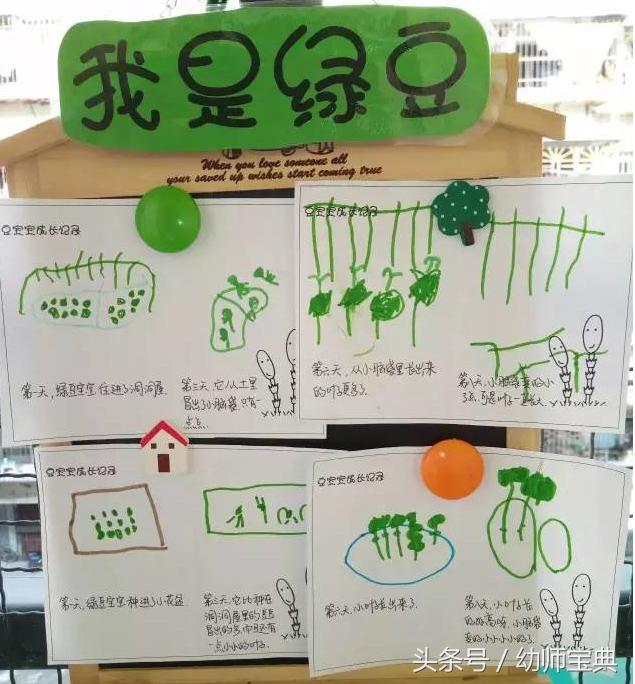 我是绿豆
When you love someone all
your saved up wishes start coming true
豆宝宝成长记录
第一天,绿豆宝宝住进了洞洞屋
第三天,它从土里
冒出了小脑袋,只有一
点点
豆宝宝成长记录
第六天,从小脑袋里长出来
的叶子更多了
第八天,小脑袋变的小
了点,可是叶子一直长大
豆宝宝成长记录
第一天,绿豆宝宝种进了小花盆
第三天,它比种在
洞洞屋里的豆豆
冒出的多,而且还有
一点小小的叶子
豆宝宝成长记录
第六天,小叶子长出来了
第八天,小叶子长
的好高呀,小脑袋
变的小小小小的了
头条号／幼师宝典